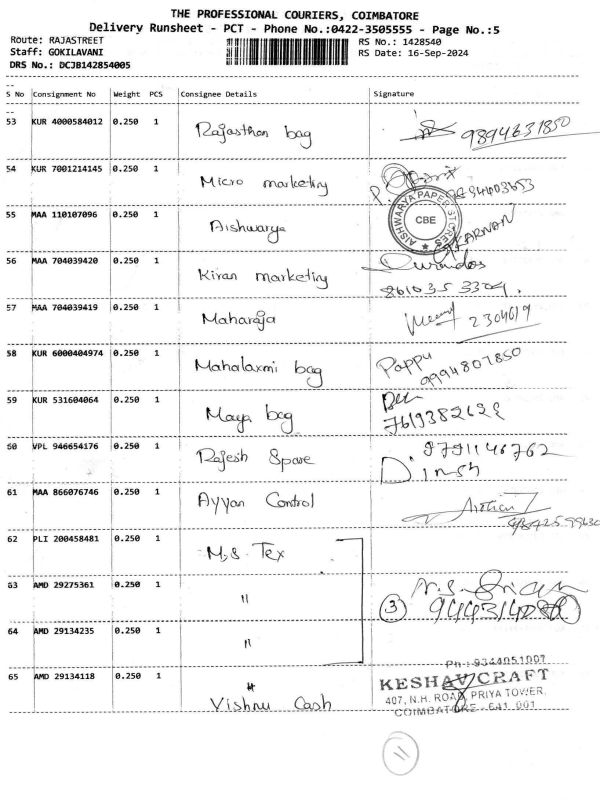 THE PROFESSIONAL COURIERS, COIMBATORE
Delivery Runsheet - PCT - Phone No.:0422-3505555 - Page No.:5
Route: RAJASTREET
RS No.: 1428540
Staff: GOKILAVANI
RS Date: 16-Sep-2024
DRS No.: DCJB142854005
S No Consignment No Weight PCS Consignee Details Signature
53 KUR 4000584012 0.250 1 Rajasthan bag 9894631850
54 KUR 7001214145 0.250 1 Micro marketing
55 MAA 110107096 0.250 1 Aishwarya
AISHWARYA PAPER STORES
CBE
KARNAN
56 MAA 704039420 0.250 1 Kiran marketing
8610353304.
57 MAA 704039419 0.250 1 Maharaja 2304619
58 KUR 6000404974 0.250 1 Mahalaxmi bag Pappu
9994807850
59 KUR 531604064 0.250 1 Maya bag
60 VPL 946654176 0.250 1 Rajesh Spare 9791146762
Dinesh
61 MAA 866076746 0.250 1 Ayyan Control
62 PLI 200458481 0.250 1 M.S. Tex
63 AMD 29275361 0.250 1 "
3
64 AMD 29134235 0.250 1 "
65 AMD 29134118 0.250 1 Vishnu Cash
Ph : 9344051007
KESHAV CRAFT
407, N.H. ROAD, PRIYA TOWER,
COIMBATORE - 641 001
11